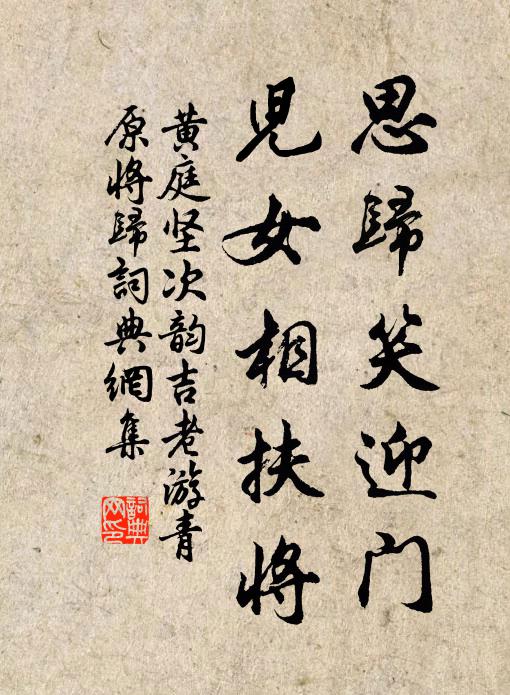 思歸笑迎门
兒女相扶將
黄庭坚次韵吉老游青
原将歸詞典網集
詞典
网印